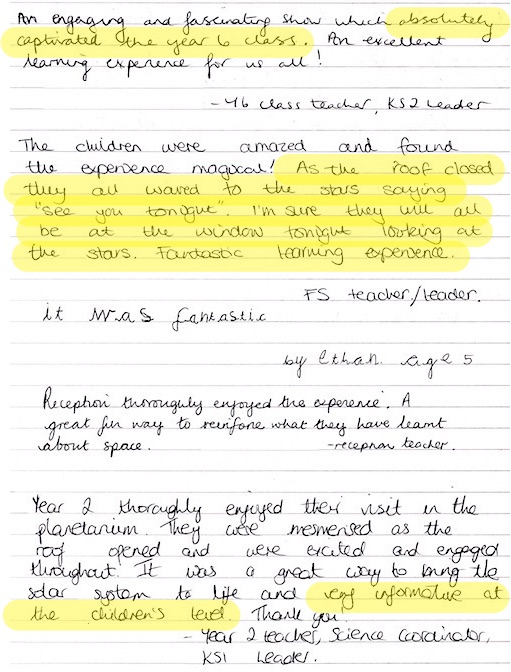 An engaging and fascinating show which absolutely
captivated the year 6 class. An excellent
learning experience for us all!
- Y6 class teacher, KS2 Leader
The children were amazed and found
the experience magical! As the roof closed
they all waved to the stars saying
"see you tonight". I'm sure they will all
be at the window tonight looking at
the stars. Fantastic learning experience.
FS teacher/leader.
it was fantastic
by Ethan. age 5
Reception thoroughly enjoyed the experience. A
great fun way to reinforce what they have learnt
about space. - reception teacher.
Year 2 thoroughly enjoyed their visit in the
planetarium. They were mesmerised as the
roof opened and were excited and engaged
throughout. It was a great way to bring the
solar system to life and very informative at
the children's level. Thank you
- Year 2 teacher, Science Coordinator,
KS1 Leader.